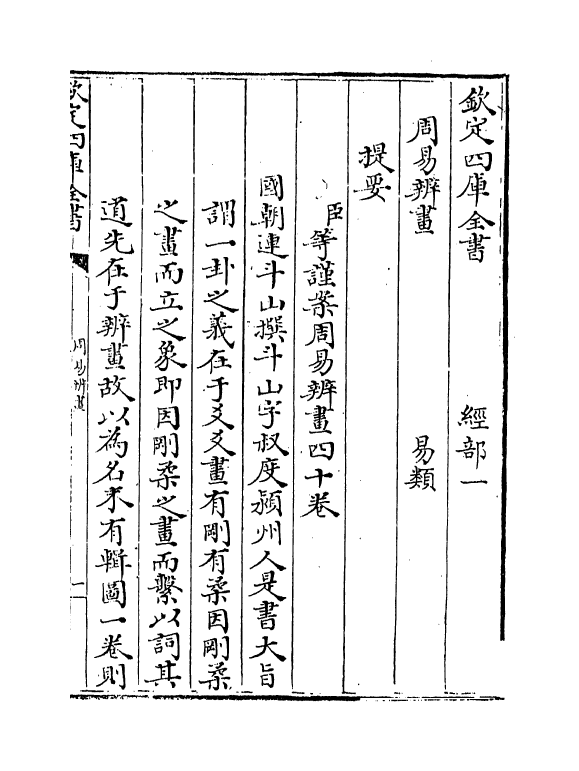 欽定四庫全書　經部一
周易辨畫　易類
提要
臣等謹案周易辨畫四十卷
國朝連斗山撰斗山字叔度潁州人是書大旨
謂一卦之義在于爻爻畫有剛有柔因剛柔
之畫而立之象即因剛柔之畫而繫以詞其
道先在于辨畫故以為名末有輯圖一卷則
欽定四庫全書
周易辨畫
一